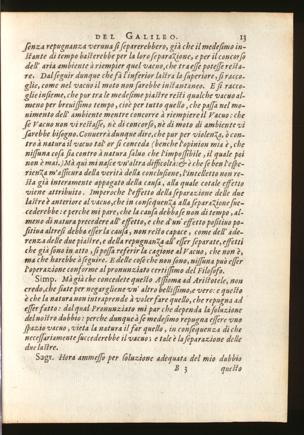 DEL GALILEO. 13
senza repugnanza veruna si separerebbero, già che il medesimo in-
stante di tempo basterebbe per la loro separazione, e per il concorso
dell' aria ambiente à riempier quel vacuo, che tra esse potesse resta-
re. Dal seguir dunque che fà l'inferior lastra la superiore, si racco-
glie, come nel vacuo il moto non sarebbe instantaneo. E si racco-
glie insieme, che pur tra le medesime piastre resti qualche vacuo al-
meno per brevissimo tempo, cioè per tutto quello, che passa nel mo-
vimento dell' ambiente mentre concorre à riempiere il Vacuo: che
se Vacuo non vi restasse, nè di concorso, nè di moto di ambiente vi
sarebbe bisogno. Converrà dunque dire, che pur per violenza, ò con-
tro à natura il vacuo tal' or si conceda (benche l'opinion mia è, che
nissuna cosa sia contro à natura salvo che l'impossibile, il quale poi
non è mai.) Mà quì mi nasce un'altra difficoltà: & è che se ben l'espe-
rienza m'assicura della verità della conclusione, l'intelletto non re-
sta già interamente appagato della causa, alla quale cotale effetto
viene attribuito. Imperoche l'effetto della separazione delle due
lastre è anteriore al vacuo, che in consequenza alla separazione suc-
cederebbe: e perche mi pare, che la causa debba se non di tempo, al-
meno di natura precedere all' effetto, e che d'un' effetto positivo po-
sitiva altresì debba esser la causa, non resto capace, come dell' ade-
renza delle due piastre, e della repugnanza all' esser separate, effetti
che già sono in atto, si possa referir la cagione al Vacuo, che non è,
ma che harebbe à seguire. E delle cose che non sono, nissuna può esser
l'operazione conforme al pronunziato certissimo del Filosofo.
Simp. Mà già che concedete questo Assioma ad Aristotele, non
credo, che siate per negargliene un' altro bellissimo, e vero: e questo
è che la natura non intraprende à voler fare quello, che repugna ad
esser fatto: dal qual Pronunziato mi par che dependa la soluzione
del nostro dubbio: perche dunque à se medesimo repugna essere uno
spazio vacuo, vieta la natura il far quello, in consequenza di che
necessariamente succederebbe il vacuo; e tale è la separazione delle
due lastre.
Sagr. Hora ammesso per soluzione adequata del mio dubbio
B 3 questo